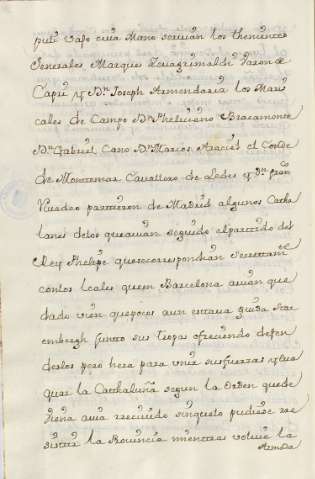 puti vajo cuia Mano seruian los thenientes
Generales Marques Leuiagrimaldi Varon de
Capri y Dn Joseph Armendariz los Maris
cales de Campo Dn Pheliciano Bracamonte
Dn Gabriel Cano Dn Marcos Araciel el Conde
de Montemar Cavallero de Ledes y Dn fran.co
Partieron de Madrid algunos Catha
lanes de los que auian seguido el partido del
Rey Phelipe que correspondian Secretam.te
con los leales que en Barcelona auian que
dado vien que pocos aun estaua Guido Star
embergh junto sus tropas ofreciendo defen
derlos pero hera para vnir sus fuerzas y eva
quar la Cathaluña segun la Orden que de
Viena auia reciuido sin que esto pudiese re
sistir la Prouincia mientras voluia la
Armda